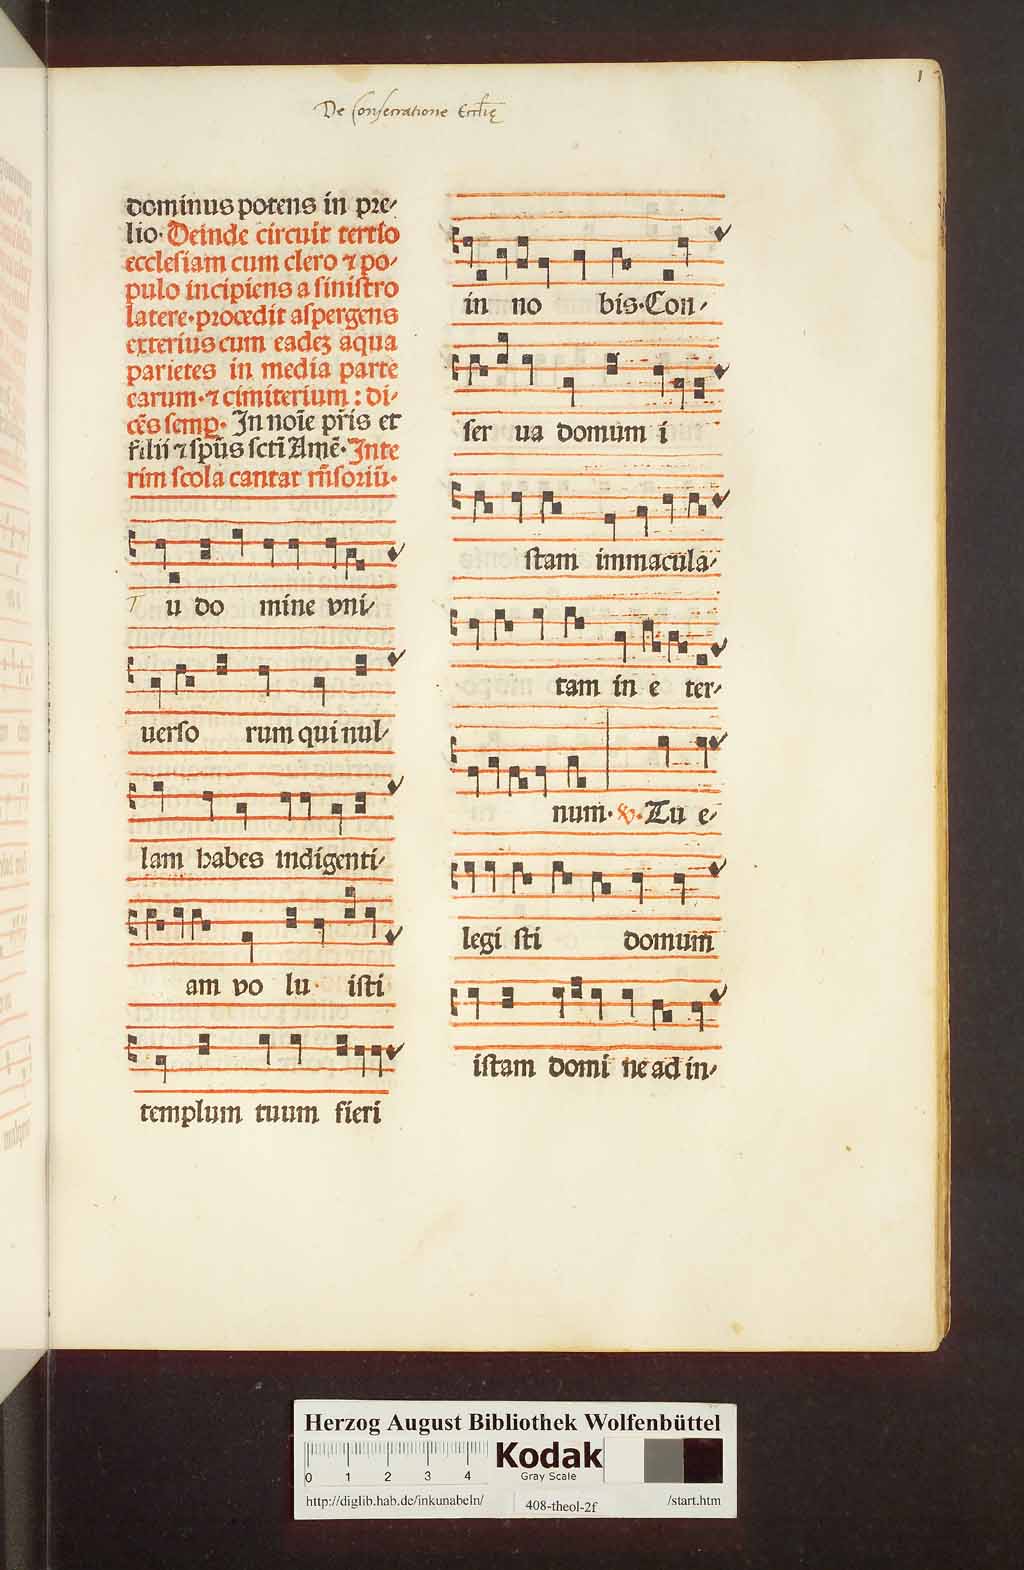 1
De Consecratione Eccl̄ię
dominus potens in pre⸗
lio. Deinde circuit tertio
ecclesiam cum clero ⁊ po⸗
pulo incipiens a sinistro
latere. procedit aspergens
exterius cum eadeꝫ aqua
parietes in media parte
earum. ⁊ cimiterium : di⸗
cēs semꝑ. In noīe pr̄is et
filii ⁊ spūs sctī Amē. Inte
rim scola cantat rn̄soriū.
T u do mine vni⸗
uerso rum qui nul⸗
lam habes indigenti⸗
am vo lu. isti
templum tuum fieri
in no bis. Con⸗
ser ua domum i
stam immacula⸗
tam in e ter⸗
num. ℣. Tu e⸗
legi sti domum
istam domi ne ad in⸗
Herzog August Bibliothek Wolfenbüttel
0 1 2 3 4
Kodak
Gray Scale
http://diglib.hab.de/inkunabeln/ 408-theol-2f /start.htm